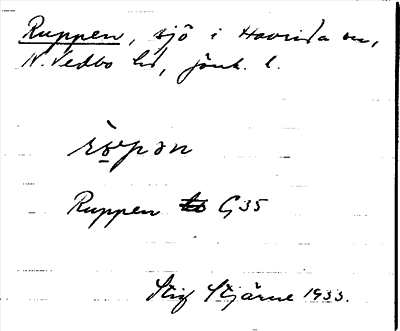 Ruppen, sjö i Haurida sn,
N. Vedbo hd, Jönk. l.
Ruppen G35
Stig Stjärne 1933.